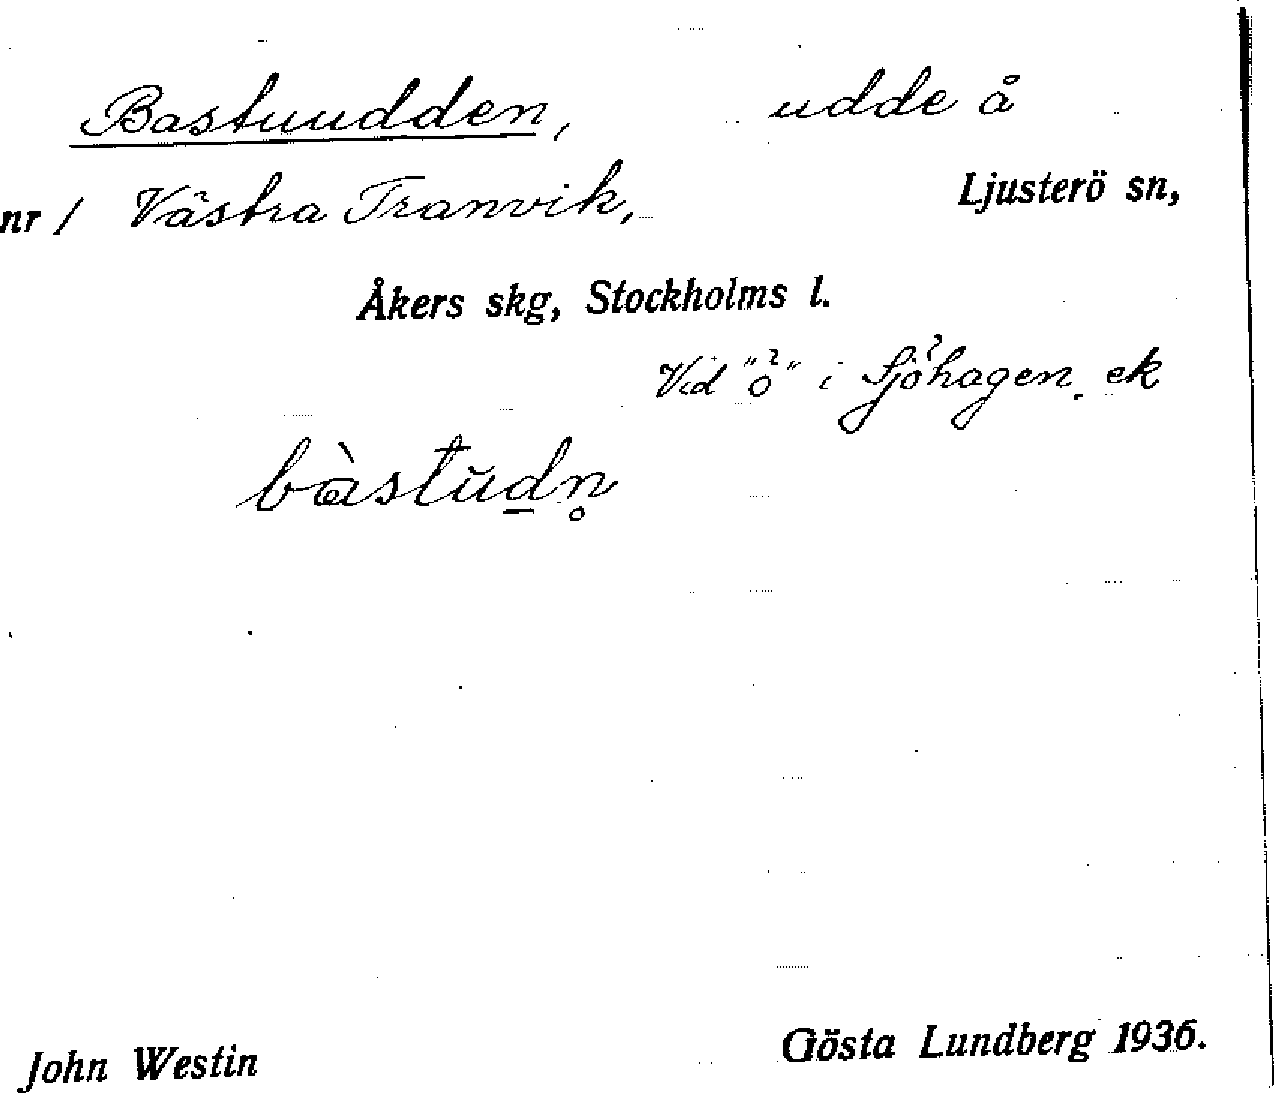 Bastuudden, udde å
nr 1 Västra Tranvik, Ljusterö sn,
Åkers skg, Stockholms l.
Vid "ö" i Sjöhagen. ek
bàstŭdn̥
John Westin Gösta Lundberg 1936.